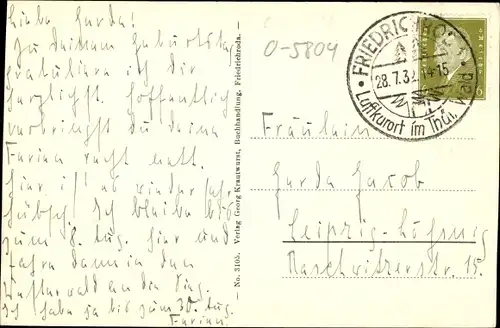 Liebe Gerda!
Zu Deinem Geburtstag
gratuliere ich Dir
herzlichst. Hoffentlich
verbringst Du Deine
Ferien recht nett.
Hier ist es wieder sehr
hübsch. Ich bleibe bis
zum 8. Aug. hier und
fahre dann in den
Ich habe ja bis zum 30. Aug.
Ferien.
No. 3105. Verlag Georg Krautwurst, Buchhandlung, Friedrichroda.
0-5804
FRIEDRICHRODA
28.7.32. 14-15
Luftkurort im Thür. Wald
6
Fräulein
Gerda Jacob
Leipzig-Lößnig
Raschwitzerstr. 15.